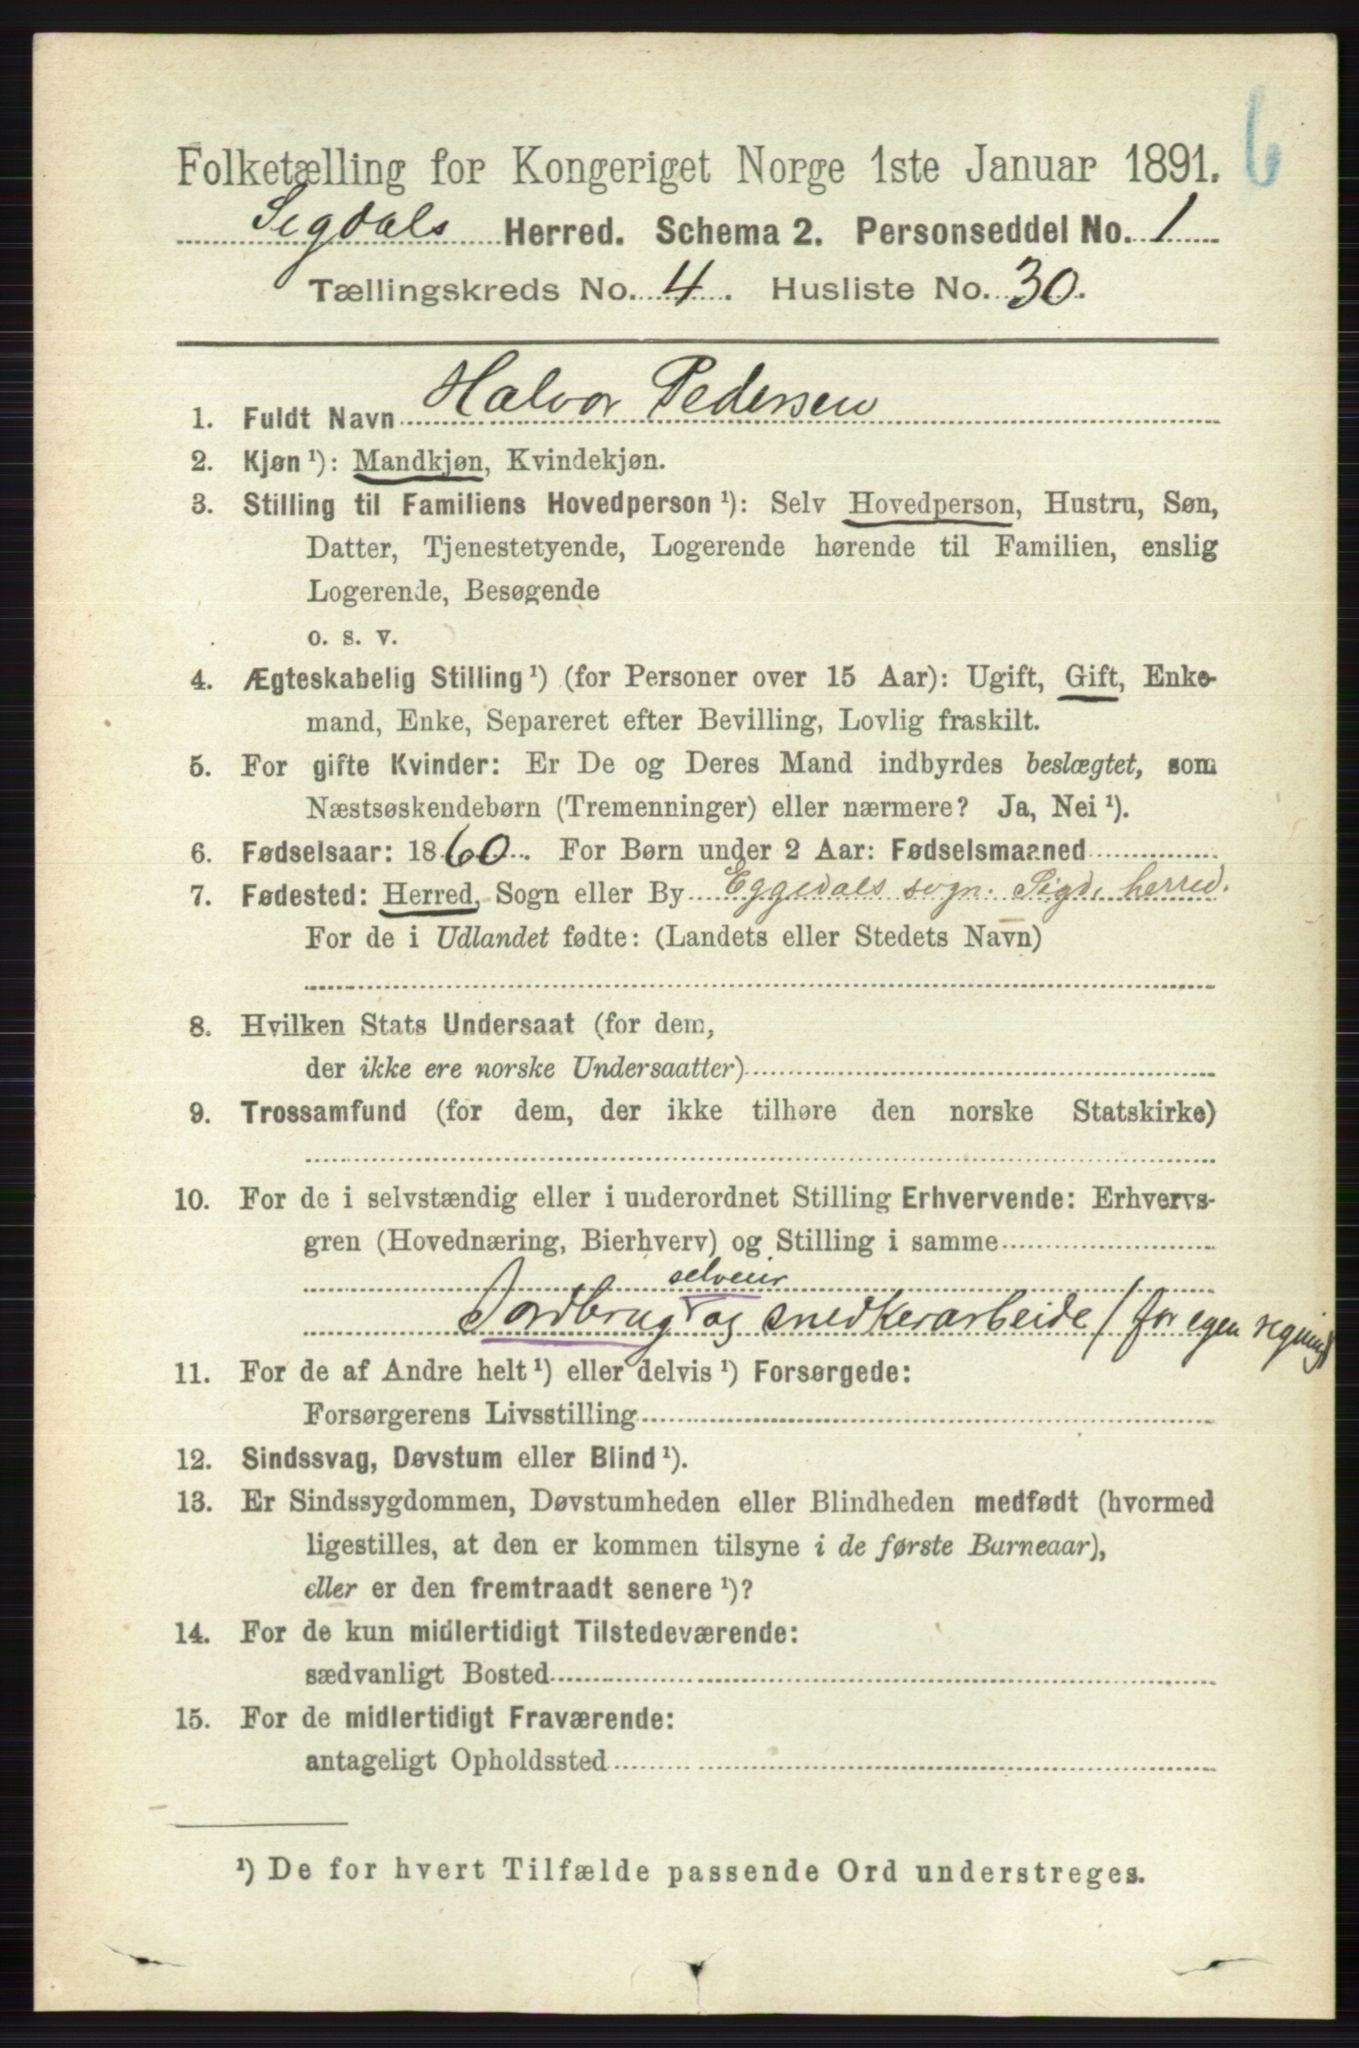 6
Folketælling for Kongeriget Norge 1ste Januar 1891.
Sigdals Herred. Schema 2. Personseddel No. 1
Tællingskreds No. 4. Husliste No. 30.
1. Fuldt Navn Halvor Pedersen
2. Kjøn ¹): Mandkjøn, Kvindekjøn.
3. Stilling til Familiens Hovedperson ¹): Selv Hovedperson, Hustru, Søn,
Datter, Tjenestetyende, Logerende hørende til Familien, enslig
Logerende, Besøgende
o. s. v.
4. Ægteskabelig Stilling ¹) (for Personer over 15 Aar): Ugift, Gift, Enke-
mand, Enke, Separeret efter Bevilling, Lovlig fraskilt.
5. For gifte Kvinder: Er De og Deres Mand indbyrdes beslægtet, som
Næstsøskendebørn (Tremenninger) eller nærmere? Ja, Nei ¹).
6. Fødselsaar: 1860. For Børn under 2 Aar: Fødselsmaaned
7. Fødested: Herred, Sogn eller By Eggedals sogn. Sigd. herred.
For de i Udlandet fødte: (Landets eller Stedets Navn)
8. Hvilken Stats Undersaat (for dem,
der ikke ere norske Undersaatter)
9. Trossamfund (for dem, der ikke tilhøre den norske Statskirke)
10. For de i selvstændig eller i underordnet Stilling Erhvervende: Erhvervs-
gren (Hovednæring, Bierhverv) og Stilling i samme
selveier
Jordbrug og snedkerarbeide / for egen regning
11. For de af Andre helt ¹) eller delvis ¹) Forsørgede:
Forsørgerens Livsstilling
12. Sindssvag, Døvstum eller Blind ¹).
13. Er Sindssygdommen, Døvstumheden eller Blindheden medfødt (hvormed
ligestilles, at den er kommen tilsyne i de første Barneaar),
eller er den fremtraadt senere ¹)?
14. For de kun midlertidigt Tilstedeværende:
sædvanligt Bosted
15. For de midlertidigt Fraværende:
antageligt Opholdssted
¹) De for hvert Tilfælde passende Ord understreges.